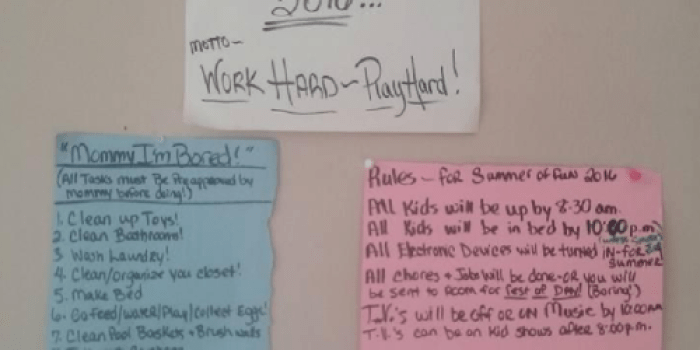 2016...
MOTTO-
WORK HARD ~ Play Hard!
"Mommy I'm Bored!"
(All Tasks must Be Preapproved by
mommy before doing!)
1. Clean up Toys!
2. Clean Bathroom!
3. Wash Laundry!
4. Clean/organize you closet!
5. Make Bed
6. Go feed/water/Play/collect Eggs!
7. Clean Pool Baskets + Brush walls
Rules ~ for Summer of Fun 2016
All Kids will be up by 8:30 am.
All Kids will be in bed by 10:00 p.m.
All Electronic Devices will be turned IN-for
Summer
All chores + Jobs will be done-OR you will
be sent to room for Rest of Day! (Boring!)
T.V.'s will be off or ON Music by 10:00AM
T.V.'s can be on Kid shows after 8:00 p.m.